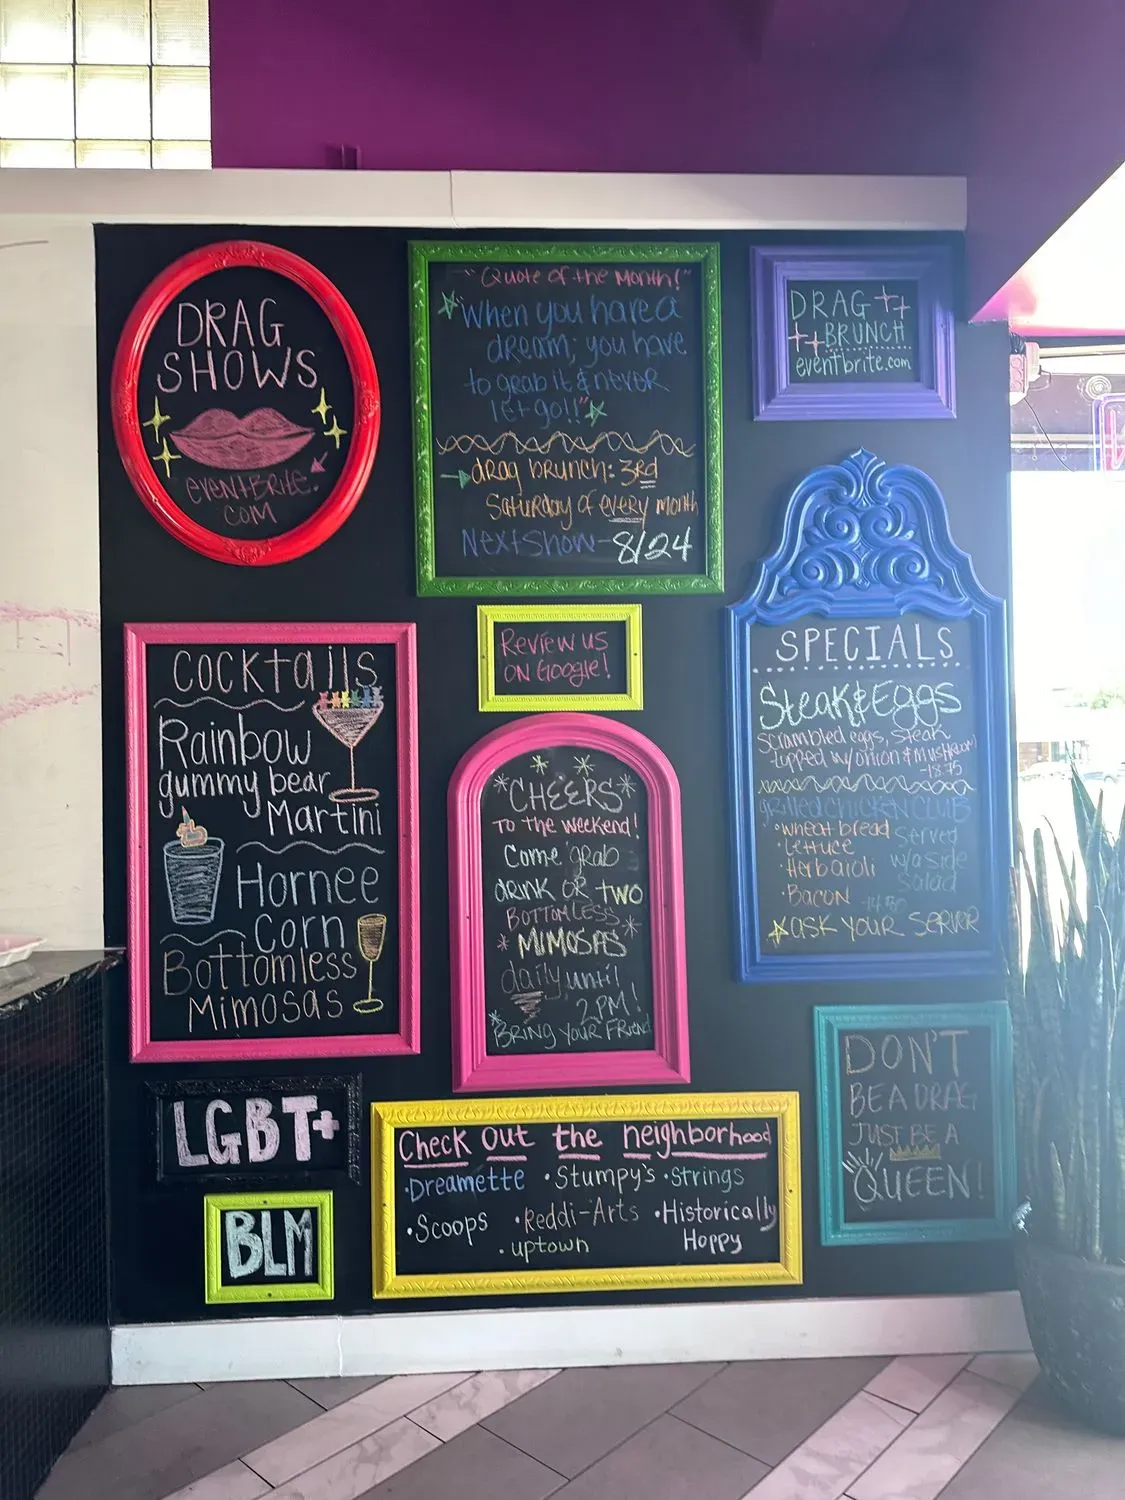 DRAG
SHOWS
EVENTBRITE.
COM
"Quote of the Month!"
"When you have a
dream, you have
to grab it & never
let go!!"
drag brunch: 3rd
Saturday of every month
Next Show - 8/24
DRAG
BRUNCH
eventbrite.com
Cocktails
Rainbow
gummy bear
Martini
Hornee
Corn
Bottomless
Mimosas
Review us
on Google!
CHEERS
TO THE WEEKEND!
Come grab
DRINK OR TWO
BOTTOMLESS
MIMOSAS
daily until
2PM!
BRING YOUR FRIEND
SPECIALS
Steak & Eggs
Scrambled eggs, steak
topped w/onion & mushroom
-18.95
grilled CHICKEN CLUB
• wheat bread
• Lettuce
• Herb aioli
• Bacon
Served
w/a side
Salad
ASK YOUR SERVER
LGBT+
BLM
Check out the neighborhood
• Dreamette • Stumpy's • Strings
• Scoops • Reddi-Arts • Historically
Hoppy
• uptown
DON'T
BE A DRAG
JUST BE A
QUEEN!